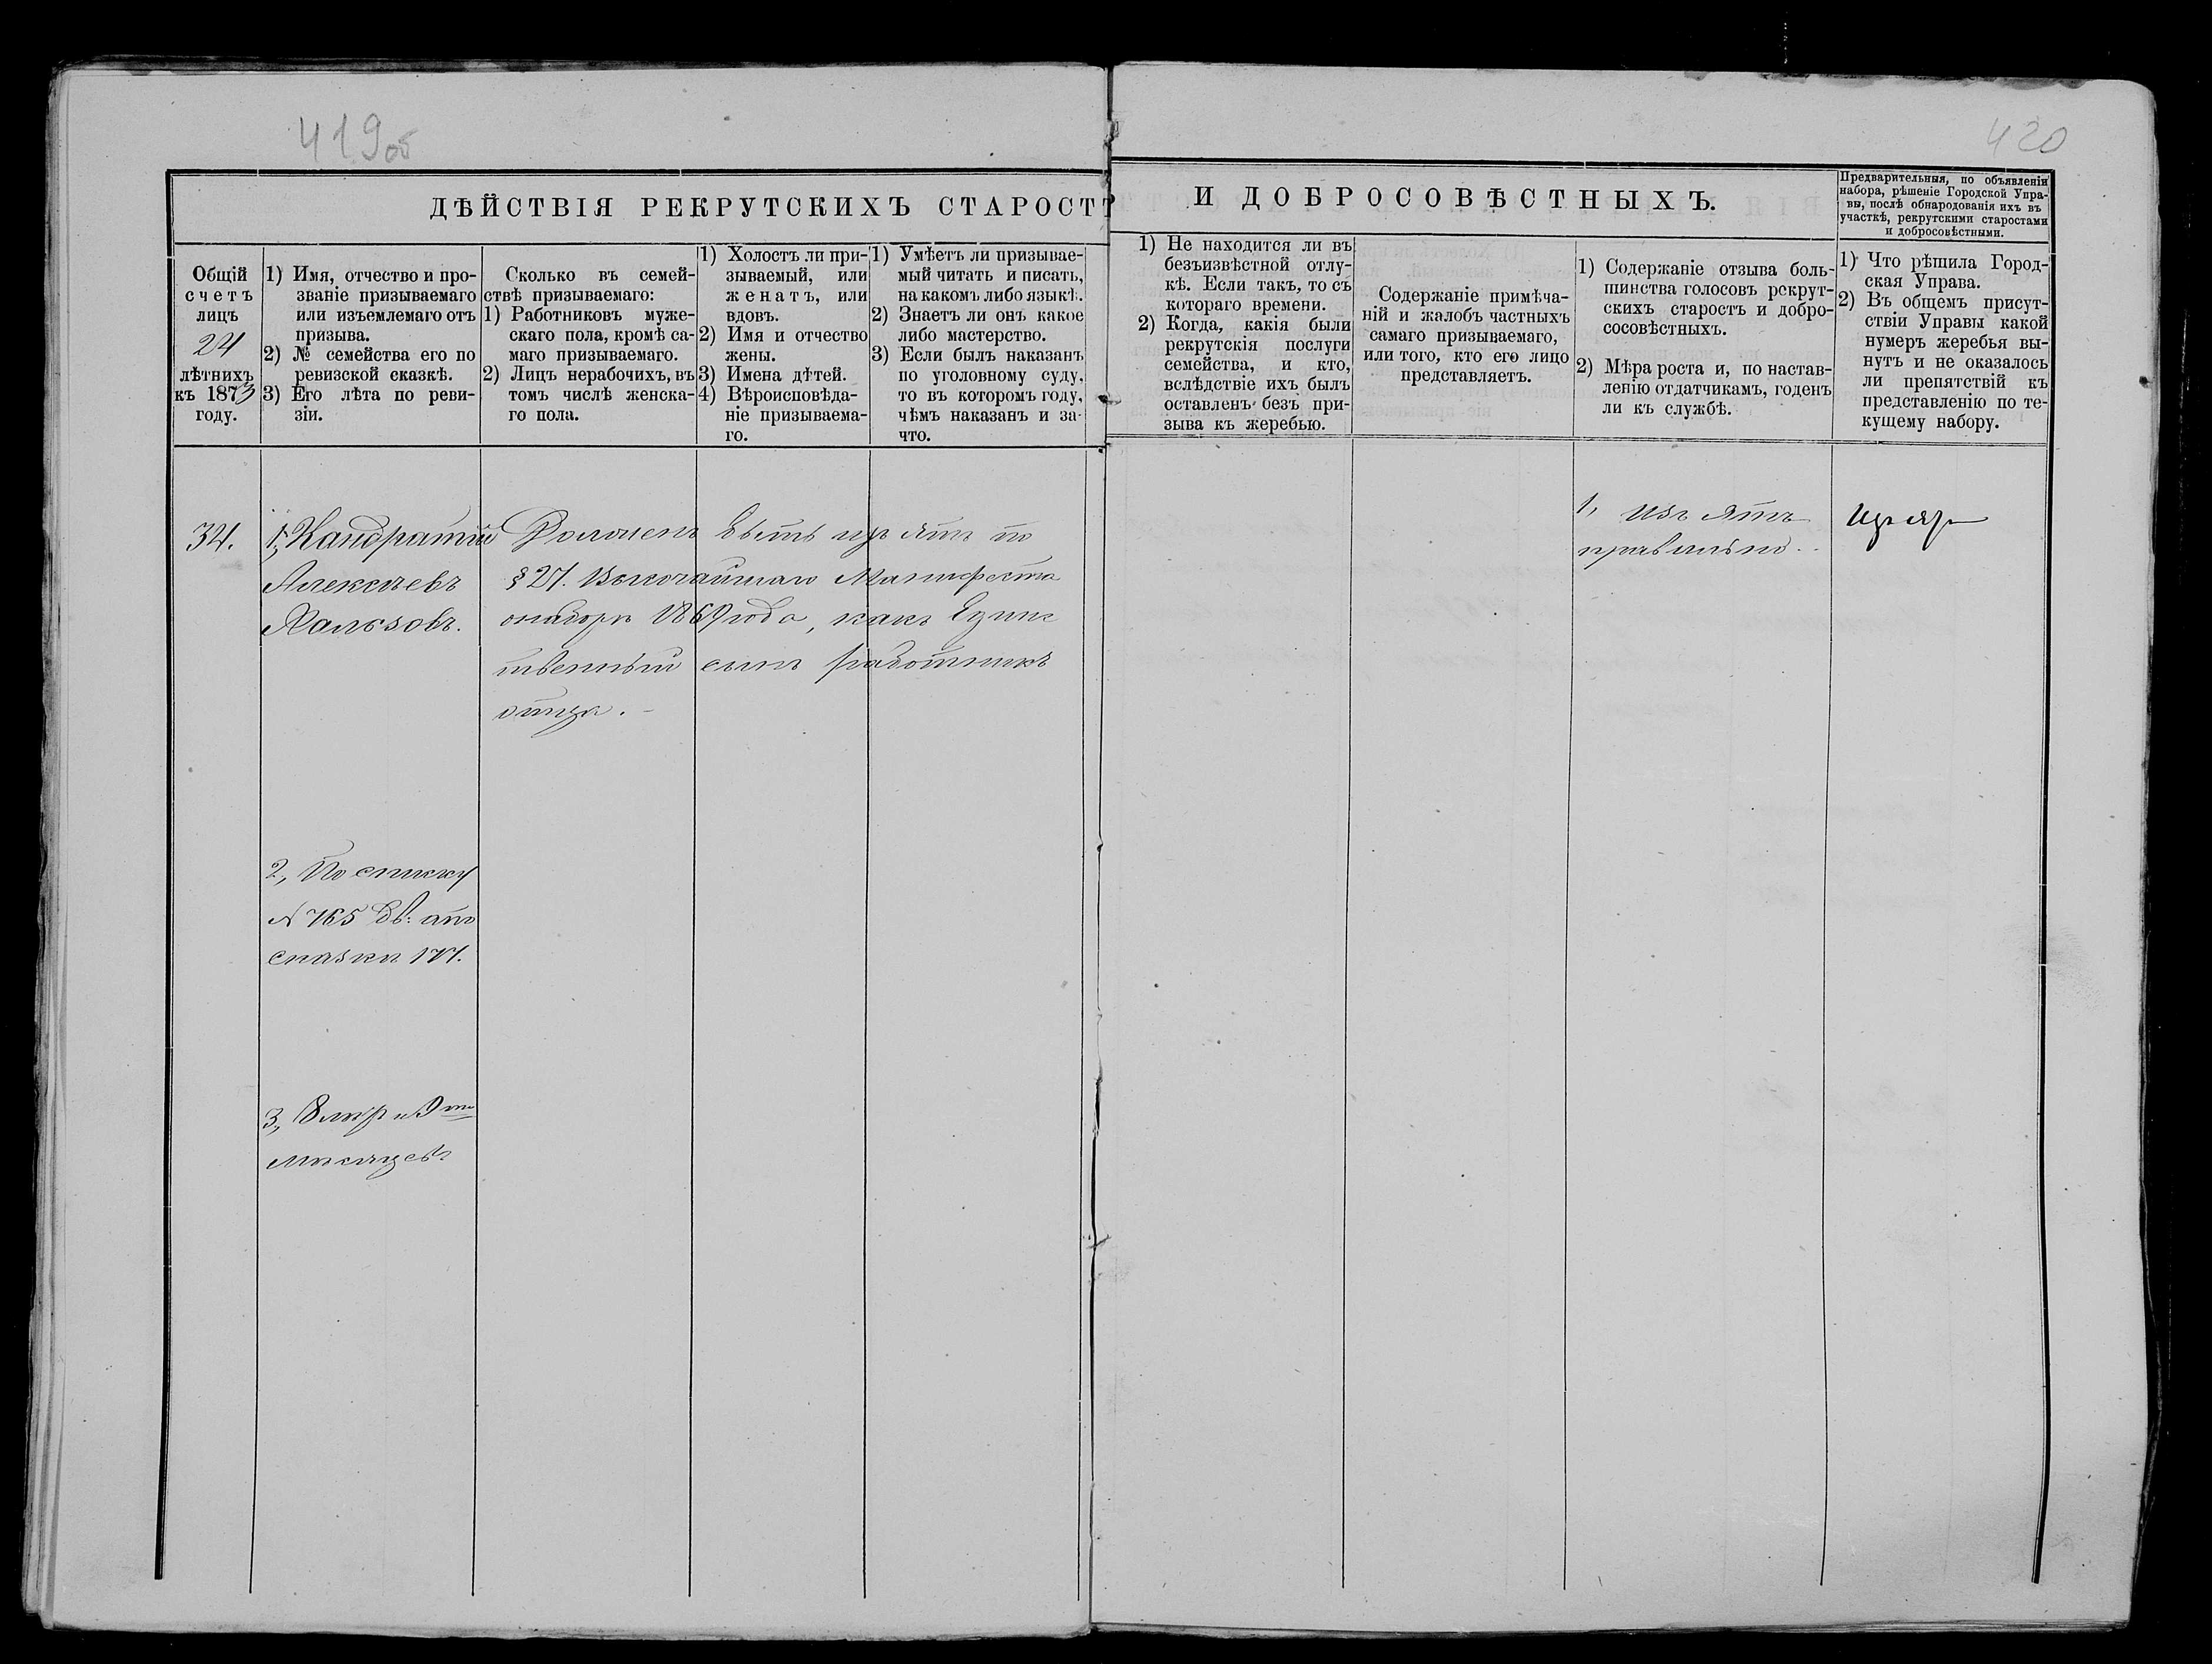 419об
420
ДѢЙСТВІЯ РЕКРУТСКИХЪ СТАРОСТЪ
И ДОБРОСОВѢСТНЫХЪ.
Предварительныя, по объявленіи
набора, рѣшеніе Городской Упра-
вы, послѣ обнародованія ихъ въ
участкѣ, рекрутскими старостами
и добросовѣстными.
Общій
счетъ
лицъ
24
лѣтнихъ
къ 1873
году.
1) Имя, отчество и про-
званіе призываемаго
или изъемлемаго отъ
призыва.
2) № семейства его по
ревизской сказкѣ.
3) Его лѣта по реви-
зіи.
Сколько въ семей-
ствѣ призываемаго:
1) Работниковъ муже-
скаго пола, кромѣ са-
маго призываемаго.
2) Лицъ нерабочихъ, въ
томъ числѣ женска-
го пола.
1) Холостъ ли при-
зываемый, или
женатъ, или
вдовъ.
2) Имя и отчество
жены.
3) Имена дѣтей.
4) Вѣроисповѣда-
ніе призываема-
го.
1) Умѣетъ ли призывае-
мый читать и писать,
на какомъ либо языкѣ.
2) Знаетъ ли онъ какое
либо мастерство.
3) Если былъ наказанъ
по уголовному суду,
то въ которомъ году,
чѣмъ наказанъ и за-
что.
1) Не находится ли въ
безъизвѣстной отлу-
кѣ. Если такъ, то съ
котораго времени.
2) Когда, какія были
рекрутскія послуги
семейства, и кто,
вслѣдствіе ихъ былъ
оставленъ безъ при-
зыва къ жеребью.
Содержаніе примѣча-
ній и жалобъ частныхъ
самаго призываемаго,
или того, кто его лицо
представляетъ.
1) Содержаніе отзыва боль-
шинства голосовъ рекрут-
скихъ старостъ и добро-
совѣстныхъ.
2) Мѣра роста и, по настав-
ленію отдатчикамъ, годенъ
ли къ службѣ.
1) Что рѣшила Город-
ская Управа.
2) Въ общемъ присут-
ствіи Управы какой
нумеръ жеребья вы-
нутъ и не оказалось
ли препятствій къ
представленію по те-
кущему набору.
34.
1, Кандратій
Алексѣевъ
Халѣзовъ.
2, По списку
№ 765
сказки 171.
3, 8 лѣтъ и 9ти
Мѣсяцевъ
Долженъ быть изъятъ по
§ 27. Высочайшаго Манифеста
о наборѣ 1869 года, какъ Един
ственный сынъ работникъ
отца.
1, Изъятъ
правильно.